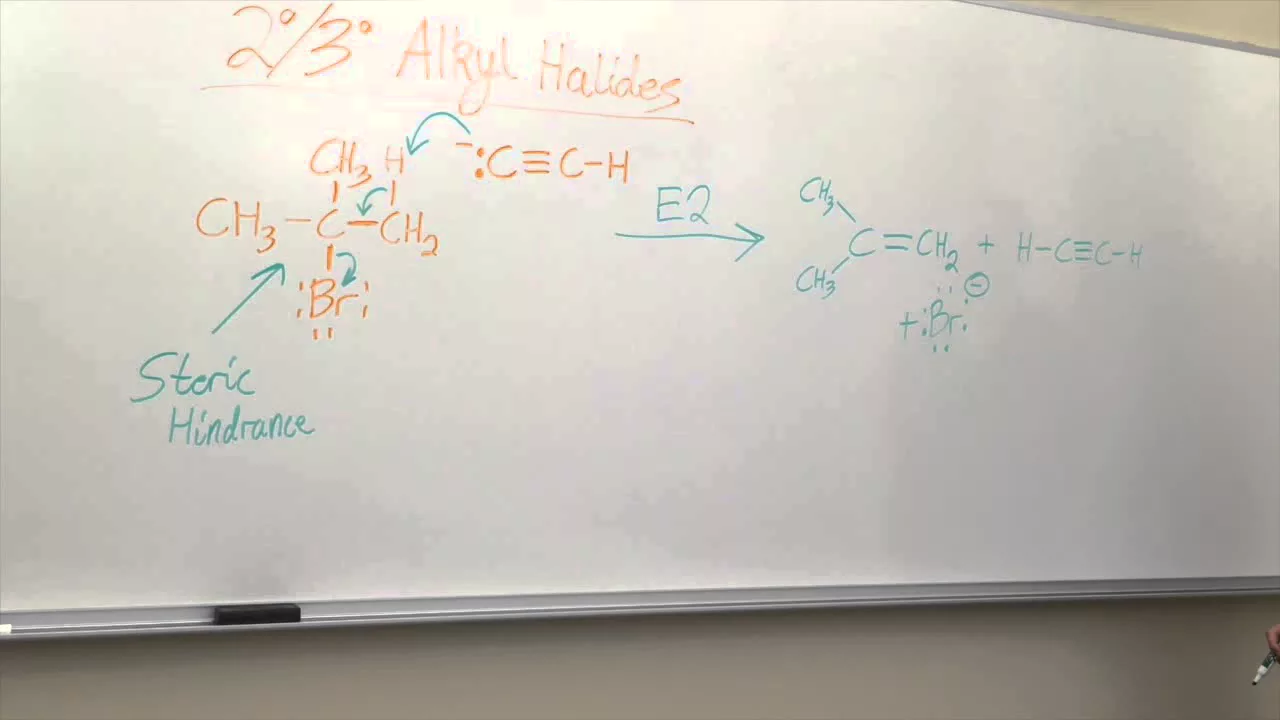 2°/3° Alkyl Halides
CH3 H - :C≡C-H
CH3-C-CH2
:Br:
E2
CH3
C=CH2 + H-C≡C-H
CH3
+ :Br: ⊖
Steric
Hindrance